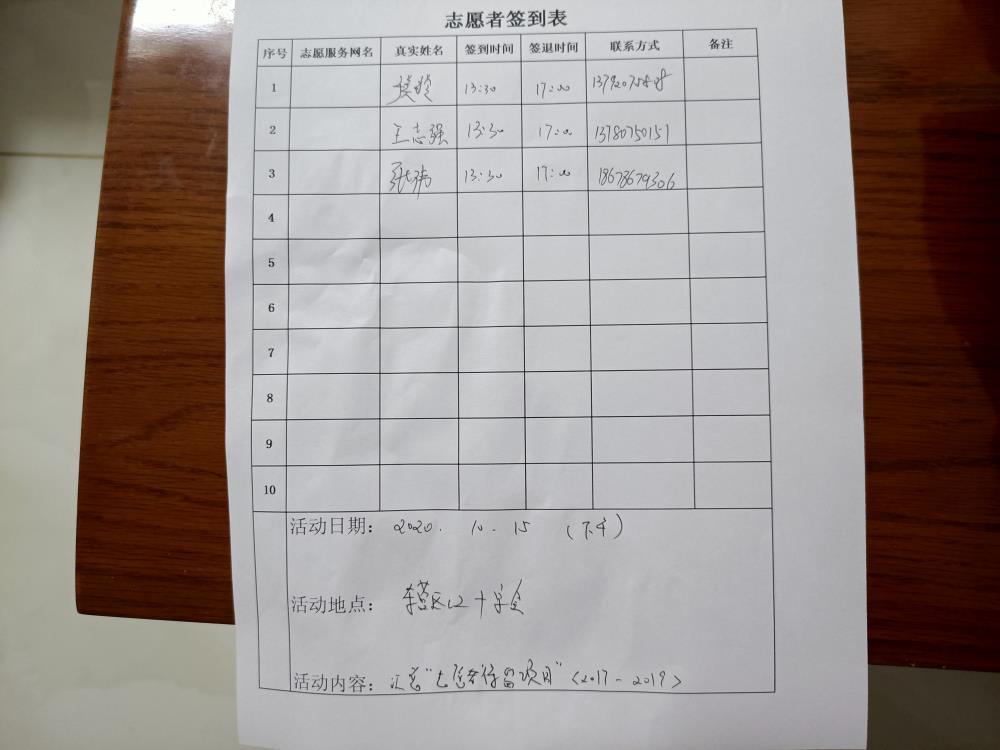 志愿者签到表
序号 志愿服务网名 真实姓名 签到时间 签退时间 联系方式 备注
1 13:30 17:00
2 王志强 13:30 17:00 13780750151
3 张玮 13:30 17:00 18678679306
4
5
6
7
8
9
10
活动日期： 2020. 10-15 (下午)
活动地点： 区红十字会
活动内容： 汇总“ 项目” <2017-2019>